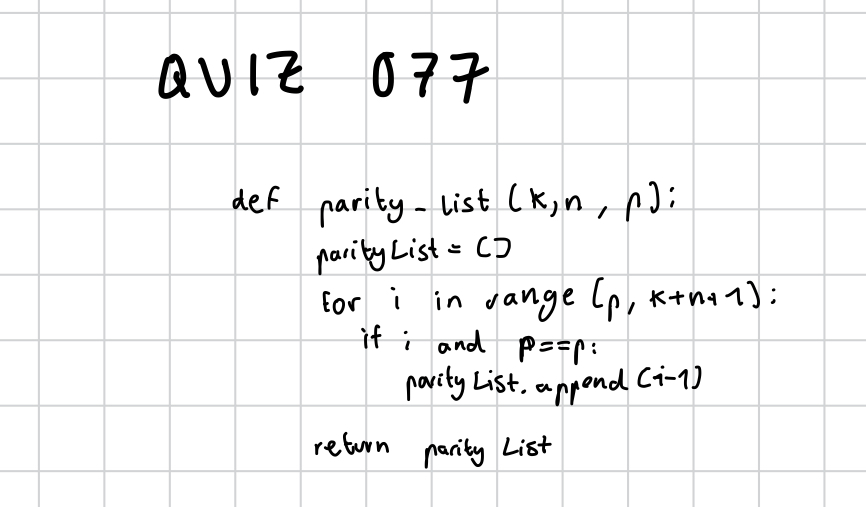 QUIZ 077
def parity_list (k,n, p):
parityList = []
for i in range (p, k+n+1):
if i and p==p:
parityList.append(i-1)
return parity List